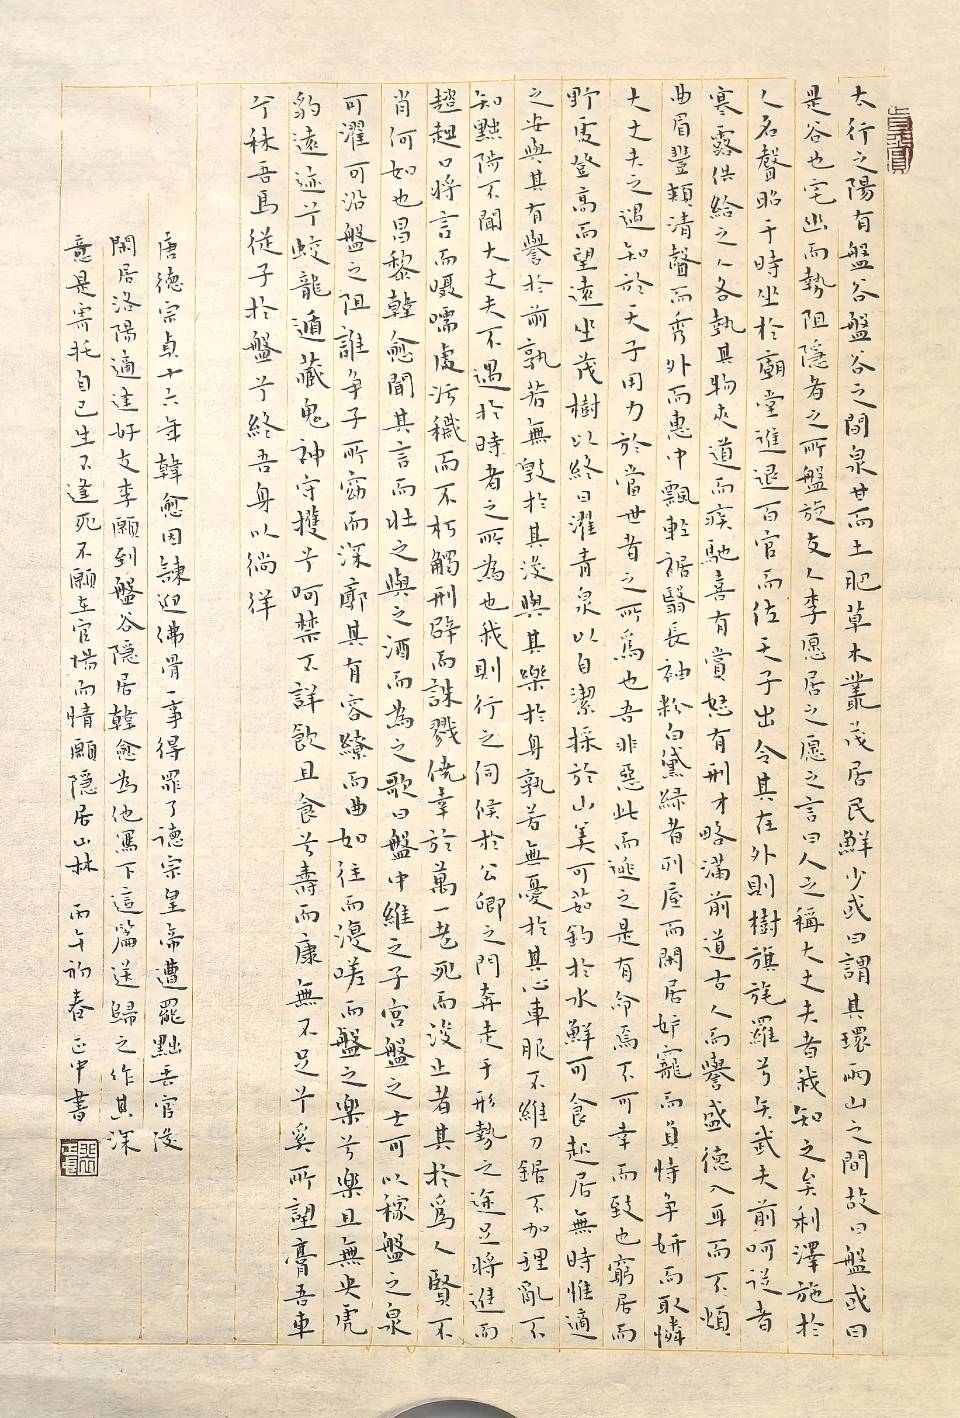 太行之陽有盤谷盤谷之間泉甘而土肥草木叢茂居民鮮少或曰謂其環兩山之間故曰盤或曰
是谷也宅幽而勢阻隱者之所盤旋友人李愿居之愿之言曰人之稱大丈夫者我知之矣利澤施於
人名聲昭于時坐於廟堂進退百官而佐天子出令其在外則樹旗旄羅弓矢武夫前呵從者
塞露供給之人各執其物夾道而疾馳喜有賞怒有刑才畯滿前道古今而譽盛德入耳而不煩
曲眉豐頰清聲而秀外而惠中飄輕裾翳長袖粉白黛綠者列屋而閑居妒寵而負恃爭妍而取憐
大丈夫之遇知於天子用力於當世者之所爲也吾非惡此而逃之是有命焉不可幸而致也窮居而
野處登高而望遠坐茂樹以終日濯青泉以自潔採於山美可茹釣於水鮮可食起居無時惟適
之安與其有譽於前孰若無毀於其後與其樂於身孰若無憂於其心車服不維刀鋸不加理亂不
知黜陟不聞大丈夫不遇於時者之所為也我則行之伺候於公卿之門奔走于形勢之途足將進而
趑趄口將言而囁嚅處污穢而不朽觸刑辟而誅戮僥幸於萬一老死而後止者其於爲人賢不
肖何如也昌黎韓愈聞其言而壯之與之酒而為之歌曰盤中維之子宮盤之土可以稼盤之泉
可濯可沿盤之阻誰爭子所窈而深廓其有容繚而曲如往而復嗟而盤之樂兮樂且無央虎
豹遠迹兮蛟龍遁藏鬼神守護兮呵禁不詳飲且食兮壽而康無不足兮奚所望膏吾車
兮秣吾馬從子於盤兮終吾身以徜徉
唐德宗貞十六年韓愈因諫迎佛骨一事得罪了德宗皇帝遭罷黜丟官後
閑居洛陽適逢好友李願到盤谷隱居韓愈為他寫下這篇送歸之作其深
意是寄託自己生不逢死不願在官場而情願隱居山林 丙午初春正中書